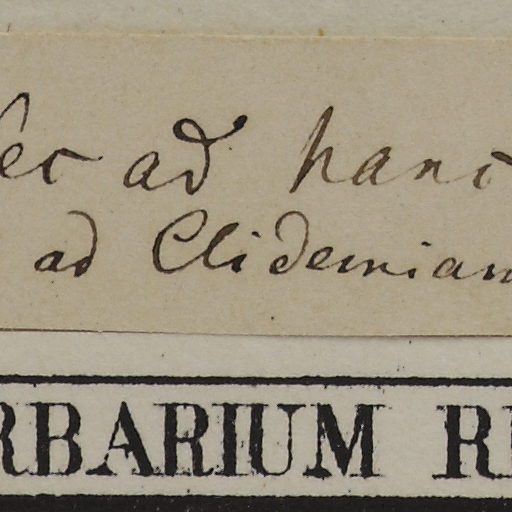 ec ad hanc
ad Clidemiam
RBARIUM R